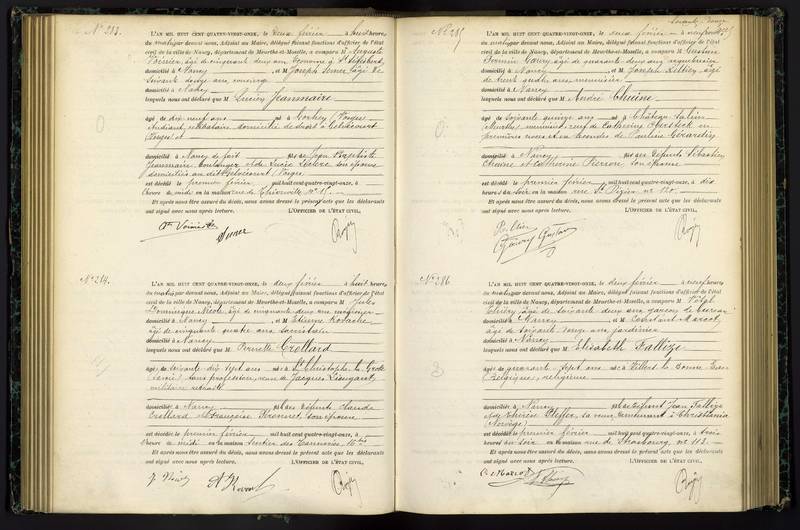 N° 283.
L'AN MIL HUIT CENT QUATRE-VINGT-ONZE, le deux février à huit heures
du matin par devant nous, Adjoint au Maire, délégué faisant fonctions d'officier de l'état
civil de la ville de Nancy, département de Meurthe-et-Moselle, a comparu M Auguste
âgé de cinquante deux ans
domicilié à Nancy, et M Joseph âgé de
soixante
domicilié à Nancy
lesquels nous ont déclaré que M Lucien Jeanmaire
âgé de dix neuf ans né à Corcieux (Vosges)
Étudiant, célibataire domicilié de droit à Gérardcourt
domicilié à Nancy de fait fils de Jean Baptiste
Jeanmaire et de Lucie son épouse
domiciliés
est décédé le premier février mil huit cent quatre-vingt-onze, à
heure de midi en la maison rue de Thionville n° 15.
Et après nous être assuré du décès, nous avons dressé le présent acte que les déclarants
ont signé avec nous après lecture. L'OFFICIER DE L'ÉTAT CIVIL,
N° 284.
L'AN MIL HUIT CENT QUATRE-VINGT-ONZE, le deux février à huit heures
du matin par devant nous, Adjoint au Maire, délégué faisant fonctions d'officier de l'état
civil de la ville de Nancy, département de Meurthe-et-Moselle, a comparu M Jules
Dominique Nicole âgé de cinquante deux ans
domicilié à Nancy, et M Etienne
âgé de cinquante quatre ans sacristain
domicilié à Nancy
lesquels nous ont déclaré que M Pernette Crollard
âgée de soixante dix sept ans née à St Christophe la Grotte
(Savoie) sans profession, veuve de Jacques
militaire retraité
domiciliée à Nancy fille des défunts Claude
Crollard et Françoise son épouse
est décédée le premier février mil huit cent quatre-vingt-onze, à
heure de midi en la maison sentier des Tanneries 16 bis
Et après nous être assuré du décès, nous avons dressé le présent acte que les déclarants
ont signé avec nous après lecture. L'OFFICIER DE L'ÉTAT CIVIL,
N° 285
L'AN MIL HUIT CENT QUATRE-VINGT-ONZE, le deux février à neuf heures
du matin par devant nous, Adjoint au Maire, délégué faisant fonctions d'officier de l'état
civil de la ville de Nancy, département de Meurthe-et-Moselle, a comparu M Gustave
Firmin Gaury, âgé de quarante deux ans
domicilié à Nancy, et M Joseph Peltier, âgé
de trente quatre ans menuisier
domicilié à Nancy
lesquels nous ont déclaré que M André Cheine
âgé de soixante quinze ans né à Château Salins
(Meurthe) menuisier, veuf de Catherine en
premières noces et en secondes de Pauline Gérardin
domicilié à Nancy fils des défunts Sébastien
Cheine et Catherine Pierron, son épouse
est décédé le premier février mil huit cent quatre-vingt-onze, à dix
heures du soir en la maison rue St Dizier n° 120
Et après nous être assuré du décès, nous avons dressé le présent acte que les déclarants
ont signé avec nous après lecture. L'OFFICIER DE L'ÉTAT CIVIL,
Peltier
Gaury Gustave
N° 286
L'AN MIL HUIT CENT QUATRE-VINGT-ONZE, le deux février à neuf heures
du matin par devant nous, Adjoint au Maire, délégué faisant fonctions d'officier de l'état
civil de la ville de Nancy, département de Meurthe-et-Moselle, a comparu M
Thiéry âgé de soixante deux ans garçon de bureau
domicilié à Nancy, et M Constant Marcot,
âgé de soixante ans jardinier
domicilié à Nancy
lesquels nous ont déclaré que M Elisabeth Fallize
âgée de quarante sept ans née à Villers la Bonne Eau
(Belgique), religieuse
domiciliée à Nancy fille de défunt Jean Fallize
et de Thérèse Steffes, sa veuve, demeurant à Christiania
(Norvège)
est décédée le premier février mil huit cent quatre-vingt-onze, à trois
heures du soir en la maison rue de Strasbourg, n° 113.
Et après nous être assuré du décès, nous avons dressé le présent acte que les déclarants
ont signé avec nous après lecture. L'OFFICIER DE L'ÉTAT CIVIL,
C. Marcot